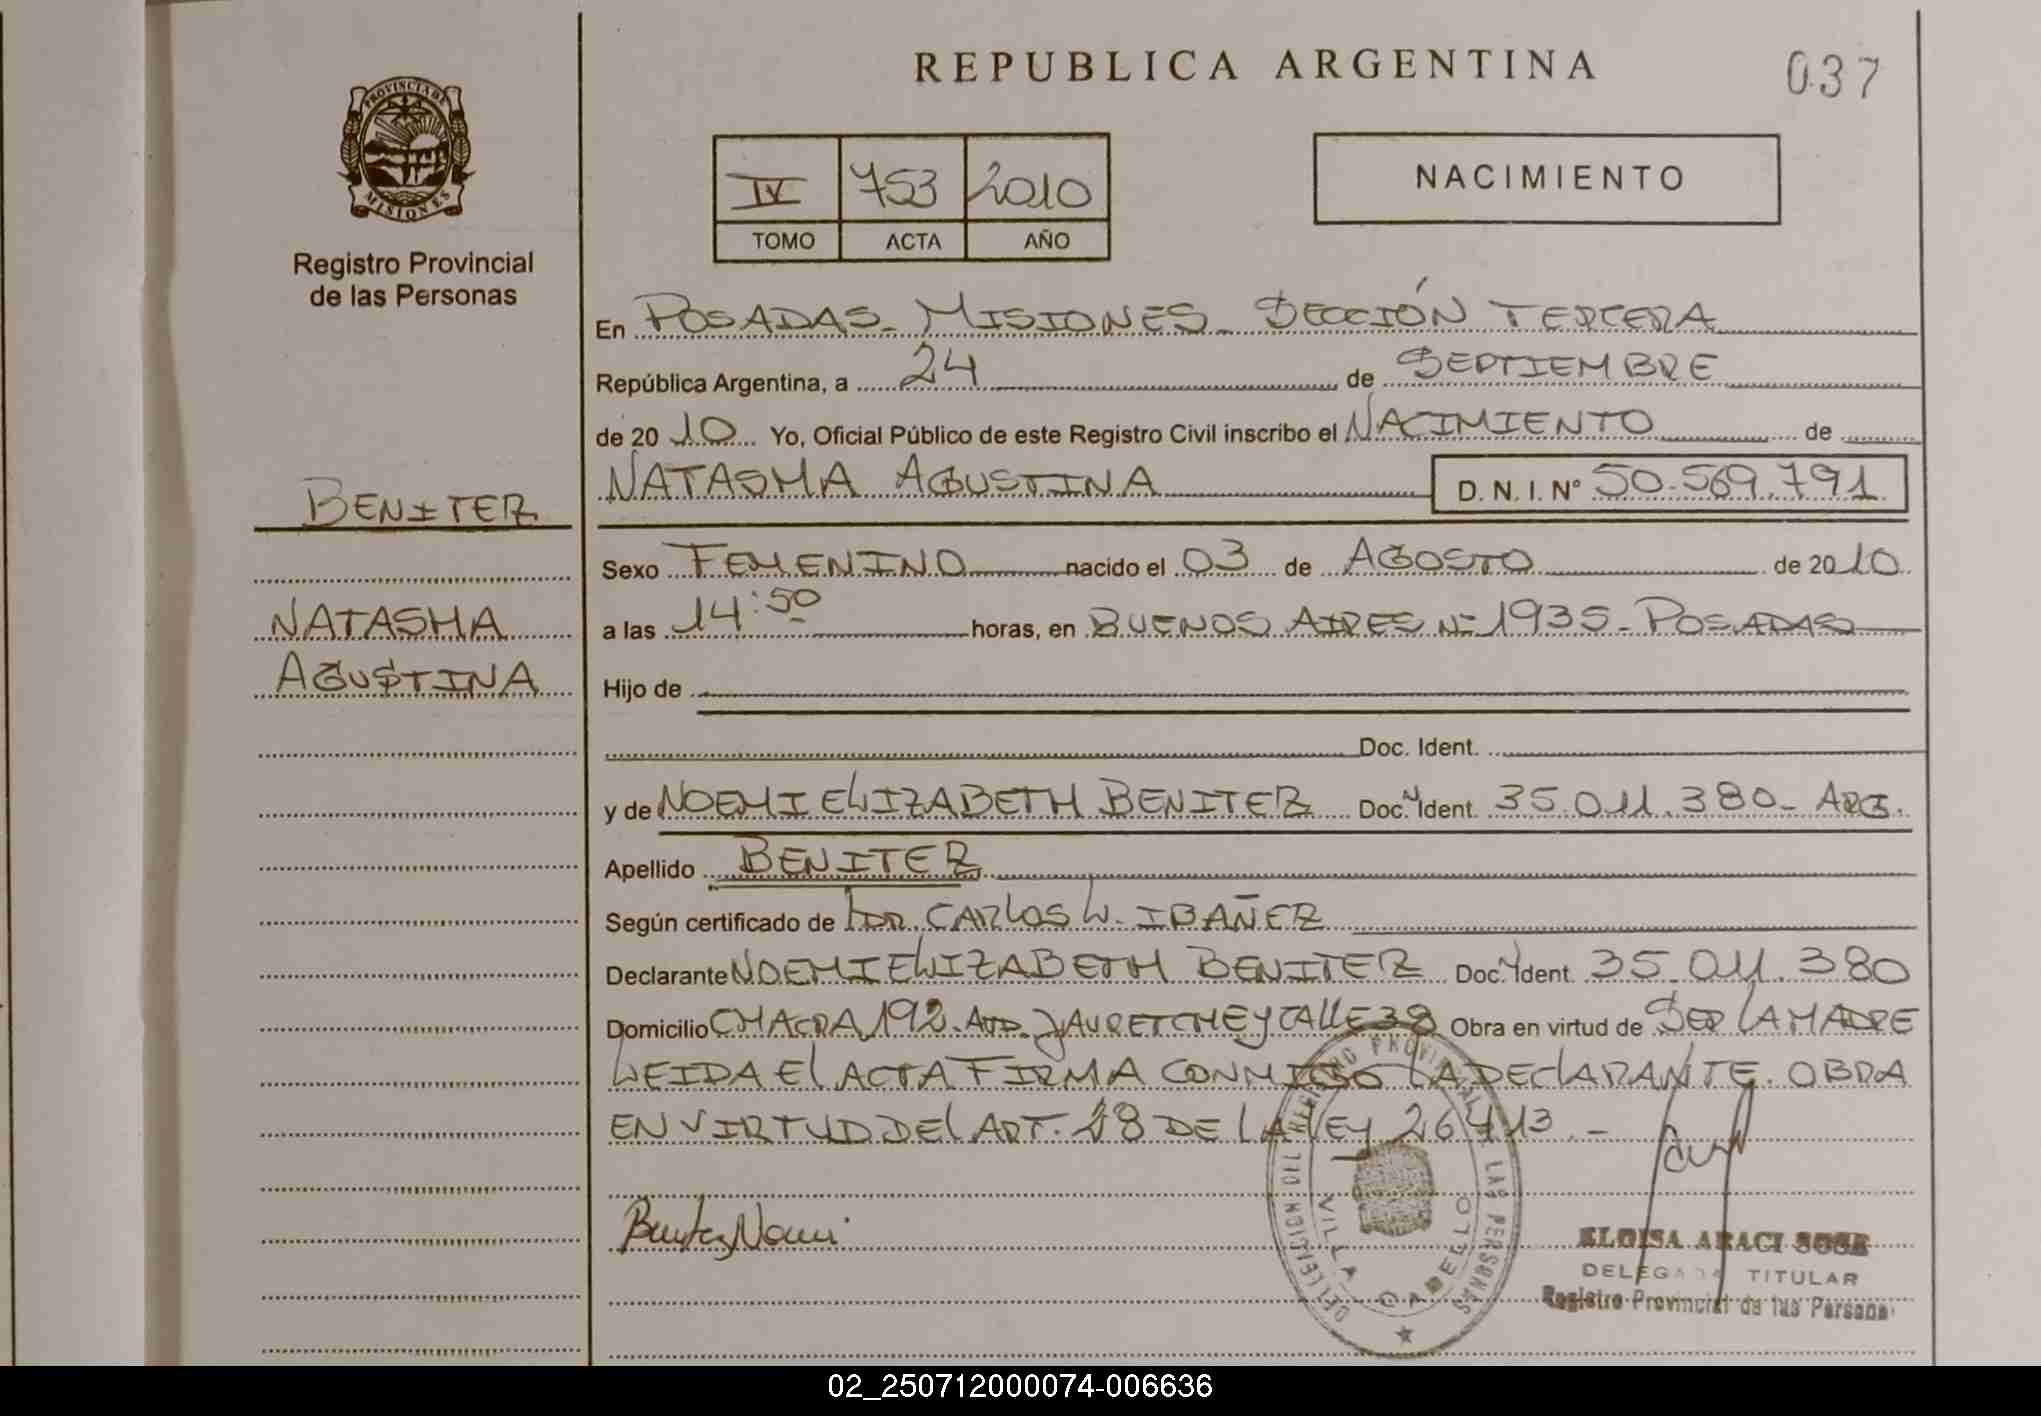 REPUBLICA ARGENTINA
037
PROVINCIA DE
MISIONES
Registro Provincial
de las Personas
IV 753 2010
TOMO ACTA AÑO
NACIMIENTO
En POSADAS - MISIONES - SECCIÓN TERCERA
República Argentina, a 24 de SEPTIEMBRE
de 2010 Yo, Oficial Público de este Registro Civil inscribo el NACIMIENTO de
NATASHA AGUSTINA D. N. I. N° 50.569.791
BENITEZ
NATASHA
AGUSTINA
Sexo FEMENINO nacido el 03 de AGOSTO de 2010
a las 14:50 horas, en BUENOS AIRES Nº 1935 - POSADAS
Hijo de
Doc. Ident.
y de NOEMI ELIZABETH BENITEZ Doc. Ident. 35.011.380 - ARG.
Apellido BENITEZ
Según certificado de DR. CARLOS W. IBAÑEZ
Declarante NOEMI ELIZABETH BENITEZ Doc. Ident. 35.011.380
Domicilio CHACRA 192 - AVD. JAURETCHE Y CALLE 38 Obra en virtud de SER LA MADRE
LEIDA El ACTA FIRMA CONMIGO LA DEClARANTE. OBRA
EN VIRTUD DEl ART. 28 DE LA LEY 26413 . -
Benitez Noemi
DELEGACION DEL REGISTRO PROVINCIAL DE LAS PERSONAS
VILLA CABELLO
ELOISA ARACI SOSE
DELEGADA TITULAR
Registro Provincial de las Personas
02_250712000074-006636